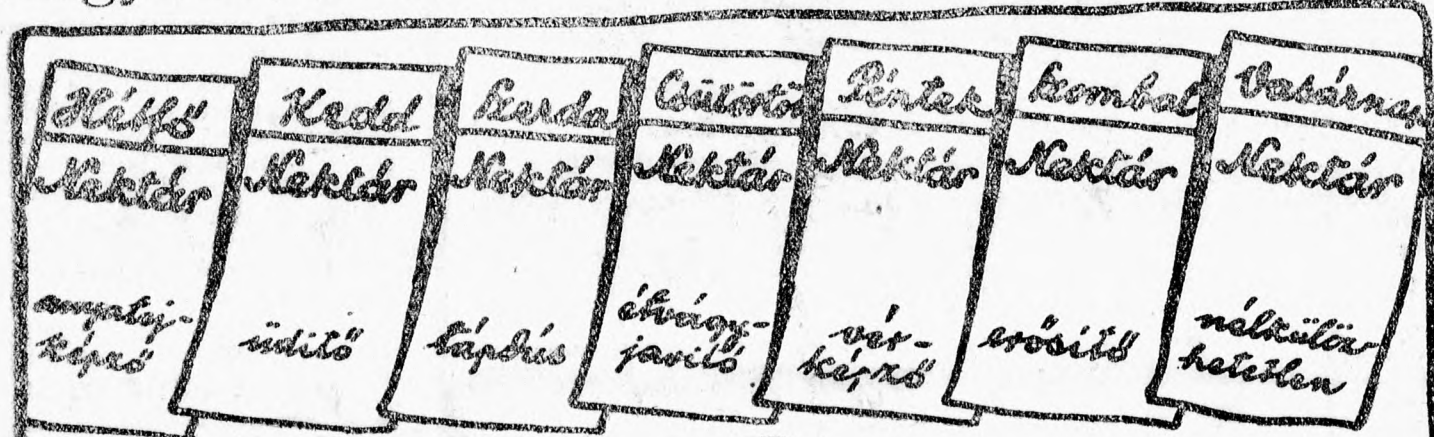 Hétfő
Nektár
anyatej-
képző
Kedd
Nektár
üditő
Szerda
Nektár
tápdús
Csütörtö
Nektár
étvágy-
javitó
Péntek
Nektár
vér-
képző
Szombat
Nektár
erősitő
Vasárnap
Nektár
nélkülöz-
hetetlen